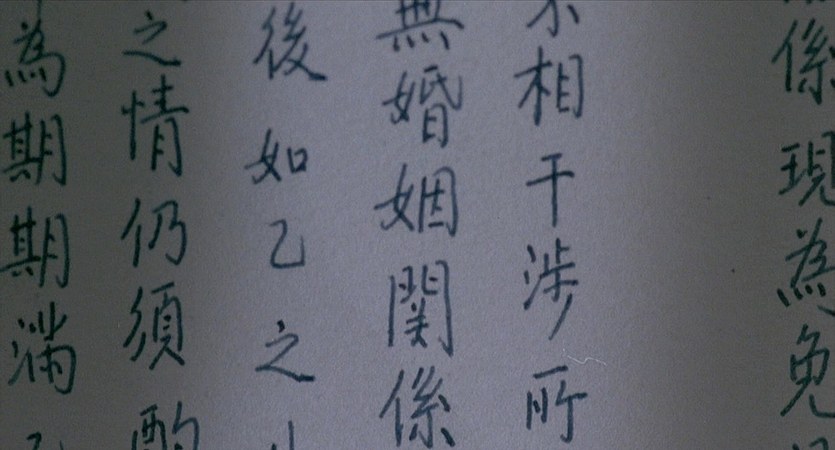 係現為免
相干涉所
無婚姻関係
後如乙之
之情仍須酌
為期期滿